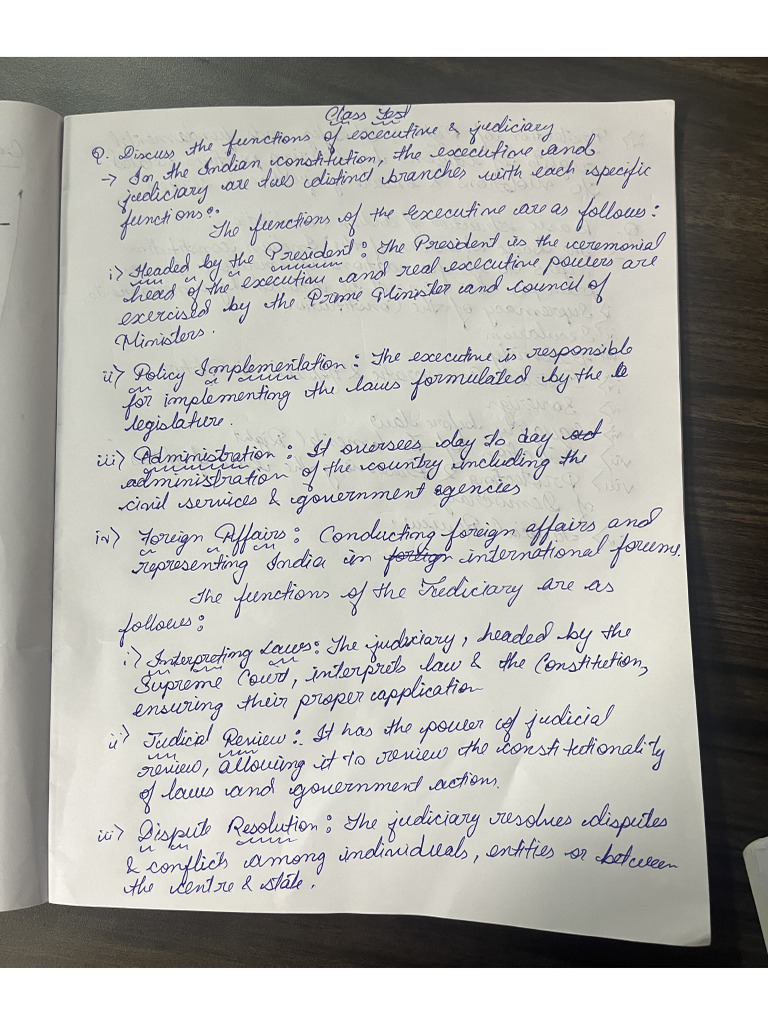 Class Test
Q. Discuss the functions of executive & judiciary
→ In the Indian constitution, the executive and
judiciary are two distinct branches with each specific
functions:
The functions of the executive are as follows:
i) Headed by the President: The President is the ceremonial
head of the executive and real executive powers are
exercised by the Prime Minister and council of
Ministers.
ii) Policy Implementation: The executive is responsible
for implementing the laws formulated by the
legislature.
iii) Administration: It oversees day to day
administration of the country including the
civil services & government agencies
iv) Foreign Affairs: Conducting foreign affairs and
representing India in foreign international forums.
The functions of the Judiciary are as
follows:
i) Interpreting Laws: The judiciary, headed by the
Supreme Court, interprets law & the Constitution,
ensuring their proper application
ii) Judicial Review: It has the power of judicial
review, allowing it to review the constitutionality
of laws and government actions.
iii) Dispute Resolution: The judiciary resolves disputes
& conflicts among individuals, entities or between
the centre & state.